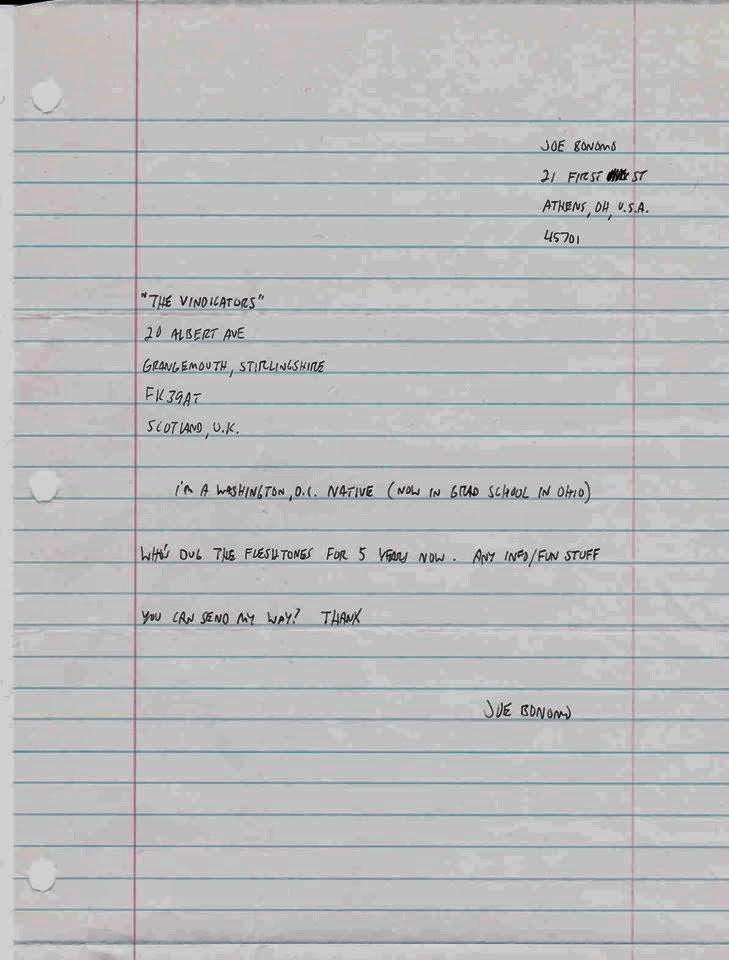 JOE BONOMO
21 FIRST ST
ATHENS, OH, U.S.A.
45701
"THE VINDICATORS"
20 ALBERT AVE
GRANGEMOUTH, STIRLINGSHIRE
FK39AT
SCOTLAND, U.K.
I'M A WASHINGTON, D.C. NATIVE (NOW IN GRAD SCHOOL IN OHIO)
WHO'S DUG THE FLESHTONES FOR 5 YEARS NOW. ANY INFO/FUN STUFF
YOU CAN SEND MY WAY? THANX
JOE BONOMO